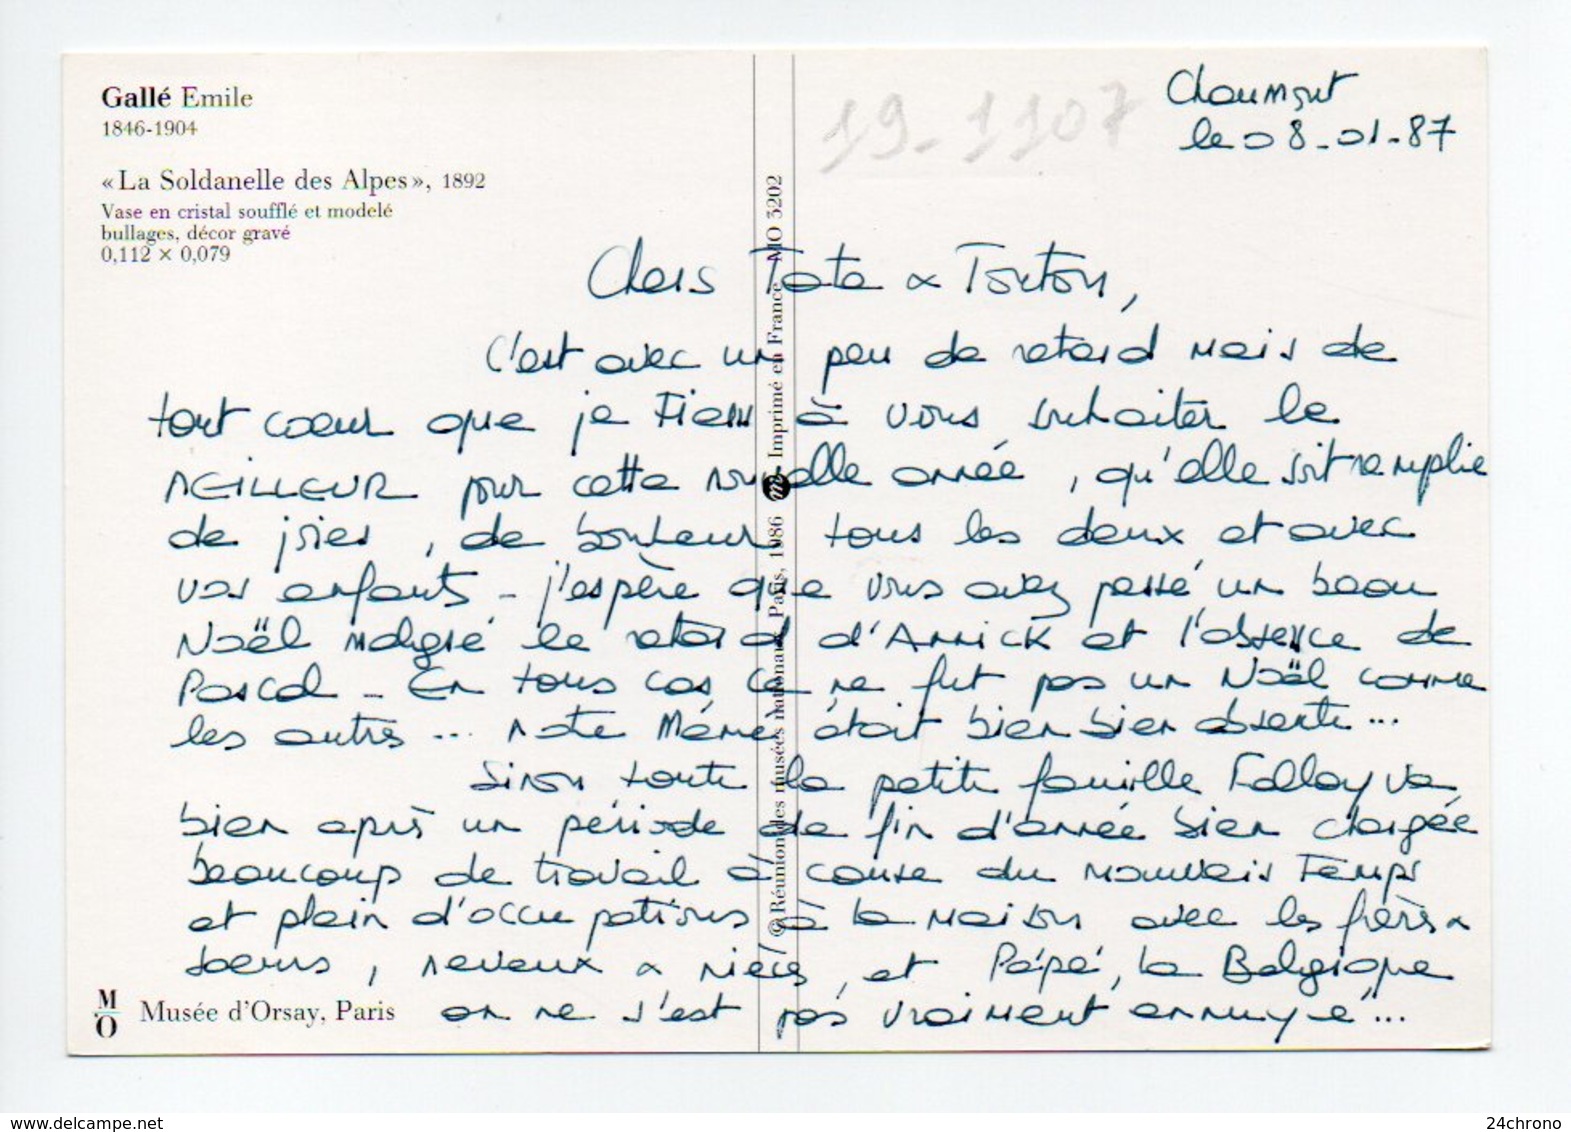 Gallé Emile
1846-1904
«La Soldanelle des Alpes», 1892
Vase en cristal soufflé et modelé
bullages, décor gravé
0,112 × 0,079
19-1107
Chaumont
le 08-01-87
Chers Tata & Tonton,
C'est avec un peu de retard mais de
tout coeur que je tiens à vous souhaiter le
MEILLEUR pour cette nouvelle année, qu'elle soit remplie
de joies, de bonheur tous les deux et avec
vos enfants - j'espère que vous avez passé un beau
Noël malgré le retard d'Annick et l'absence de
Pascal - En tous cas ce ne fut pas un Noël comme
les autres ... notre Mémé était bien bien absente ...
Sinon toute la petite famille Falloy va
bien après un période de fin d'année bien chargée
beaucoup de travail à cause du mauvais temps
et plein d'occupations à la maison avec les frères &
soeurs, neveux & nièces, et Pépé, la Belgique
on ne s'est pas vraiment ennuyé ...
© Réunion des musées nationaux, Paris, 1986 m Imprimé en France MO 3202
M'O Musée d'Orsay, Paris
www.delcampe.net
24chrono